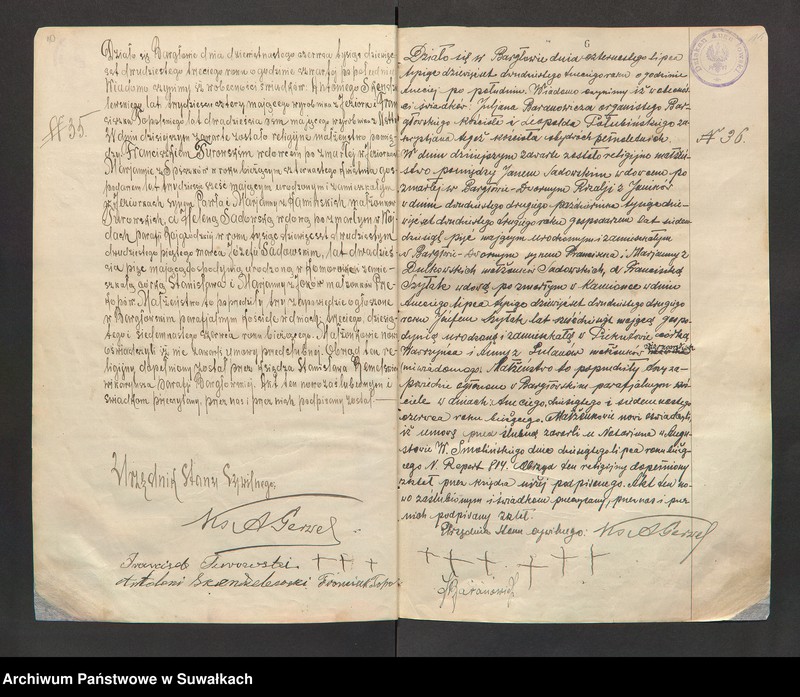 № 35.
Działo się w Bargłowie dnia dziewiętnastego czerwca tysiąc dziewięć-
set dwudziestego trzeciego roku o godzinie czwartej po południu
Wiadomo czynimy iż w obecności świadków, Antoniego
lat trzydzieści cztery mającego wyrobnika z
lat dwadzieścia osm mającego wyrobnika z
W dniu dzisiejszym zawarte zostało religijne małżeństwo pomię-
dzy Franciszkiem Turowskim wdowcem po zmarłej w
Marjannie z w roku bieżącym kwietnia gos-
podarzem lat trzydzieści sześć mającym urodzonym i zamieszkałym
w synem Pawła i Marjanny z Kamińskich małżonków
Turowskich, a Heleną Sadowską wdową po zmarłym w
parafji w roku tysiąc dziewięćset dwudziestym
dwudziestego piątego marca Józefie Sadowskim, lat dwadzieś-
cia pięć mającą gospodynią urodzoną w i zamie-
szkałą córką Stanisława i Marjanny z małżonków
Małżeństwo to poprzedziły trzy zapowiedzie ogłoszone
w Bargłowskim parafjalnym kościele w dniach: trzeciego, dziesią-
tego i siedemnastego czerwca roku bieżącego. Małżonkowie nowi
oświadczyli iż nie zawarli umowy przedślubnej. Obrząd ten re-
ligijny dopełniony został przez księdza Stanisława
wikarjusza parafji Bargłowskiej. Akt ten nowozaślubionym i
świadkom przeczytany, przez nas i przez nich podpisany został.
Urzędnik Stanu Cywilnego:
Ks A Gerzel
Franciszek Turowski + + +
Antoni Franciszek
6
№ 36.
Działo się w Bargłowie dnia czternastego lipca
tysiąc dziewięćset dwudziestego trzeciego roku o godzinie
trzeciej po południu. Wiadomo czynimy iż w obecno-
ści świadków: Juljana Baranowicza organisty Bar-
głowskiego kościoła i Leopolda za-
krystjana tegoż kościoła obydwóch pełnoletnich.
W dniu dzisiejszym zawarte zostało religijne małżeń-
stwo pomiędzy Janem Sadowskim wdowcem po
zmarłej w Bargłowie-Dwornym Rozalji z
w dniu dwudziestego drugiego października tysiąc dzie-
więćset dwudziestego drugiego roku gospodarzem lat siedem-
dziesiąt pięć mającym urodzonym i zamieszkałym
w Bargłowie-Dwornym synem Franciszka i Marjanny z
małżonków Sadowskich, a Franciszką
Szyłak wdową po zmarłym w Kamionce w dniu
trzeciego lipca tysiąc dziewięćset dwudziestego drugiego
roku Józefem Szyłak lat sześćdziesiąt mającą gospo-
dynią urodzoną i zamieszkałą w córką
Wawrzyńca i Anny z małżonków
niewiadomego. Małżeństwo to poprzedziły trzy za-
powiedzie ogłoszone w Bargłowskim parafjalnym koś-
ciele w dniach: trzeciego, dziesiątego i siedemnastego
czerwca roku bieżącego. Małżonkowie nowi oświadczyli,
iż umowę przed ślubną zawarli u Notarjusza w Augu-
stowie W. Smolińskiego dnia dziesiątego lipca roku bieżą-
cego N. Repert 814. Obrząd ten religijny dopełniony
został przez księdza niżej podpisanego. Akt ten no-
wo zaślubionym i świadkom przeczytany, przez nas i przez
nich podpisany został.
Urzędnik Stanu cywilnego: Ks A Gerzel
+ + + + + +
J Baranowicz
Archiwum Państwowe w Suwałkach